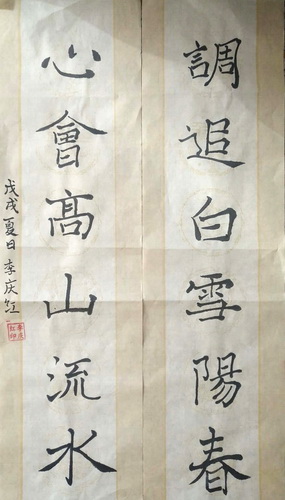 調追白雪陽春
心會髙山流水
戊戌夏日李庆红